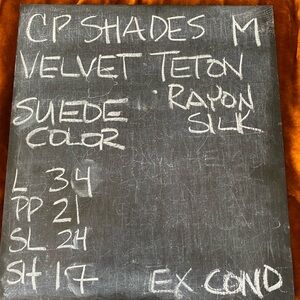 CP SHADES M
VELVET TETON
SUEDE COLOR
RAYON SILK
L 34
PP 21
SL 24
SH 17
EX COND